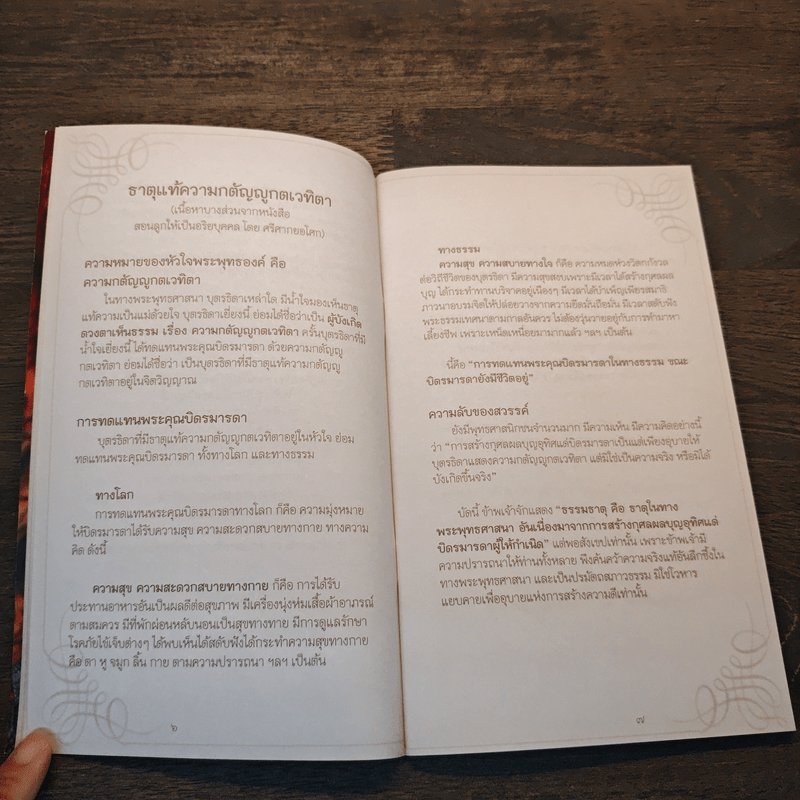 ธาตุแท้ความกตัญญูกตเวทิตา
(เนื้อหาบางส่วนจากหนังสือ
สอนลูกให้เป็นอริยบุคคล โดย ศรีศากยอโศก)
ความหมายของหัวใจพระพุทธองค์ คือ
ความกตัญญูกตเวทิตา
ในทางพระพุทธศาสนา บุตรธิดาเหล่าใด มีน้ำใจมองเห็นธาตุ
แท้ความเป็นแม่ด้วยใจ บุตรธิดาเยี่ยงนี้ ย่อมได้ชื่อว่าเป็น ผู้บังเกิด
ดวงตาเห็นธรรม เรื่อง ความกตัญญูกตเวทิตา ครั้นบุตรธิดาที่มี
น้ำใจเยี่ยงนี้ ได้ทดแทนพระคุณบิดรมารดา ด้วยความกตัญญู
กตเวทิตา ย่อมได้ชื่อว่า เป็นบุตรธิดาที่มีธาตุแท้ความกตัญญู
กตเวทิตาอยู่ในจิตวิญญาณ
การทดแทนพระคุณบิดรมารดา
บุตรธิดาที่มีธาตุแท้ความกตัญญูกตเวทิตาอยู่ในหัวใจ ย่อม
ทดแทนพระคุณบิดรมารดา ทั้งทางโลก และทางธรรม
ทางโลก
การทดแทนพระคุณบิดรมารดาทางโลก ก็คือ ความมุ่งหมาย
ให้บิดรมารดาได้รับความสุข ความสะดวกสบายทางกาย ทางความ
คิด ดังนี้
ความสุข ความสะดวกสบายทางกาย ก็คือ การได้รับ
ประทานอาหารอันเป็นผลดีต่อสุขภาพ มีเครื่องนุ่งห่มเสื้อผ้าอาภรณ์
ตามสมควร มีที่พักผ่อนหลับนอนเป็นสุขทางกาย มีการดูแลรักษา
โรคภัยไข้เจ็บต่างๆ ได้พบเห็นได้สดับฟังได้กระทำความสุขทางกาย
คือ ตา หู จมูก ลิ้น กาย ตามความปรารถนา ฯลฯ เป็นต้น
๖
ทางธรรม
ความสุข ความสบายทางใจ ก็คือ ความหมดห่วงวิตกกังวล
ต่อวิถีชีวิตของบุตรธิดา มีความสุขสงบเพราะมีเวลาได้สร้างกุศลผล
บุญ ได้กระทำทานบริจาคอยู่เนืองๆ มีเวลาได้บำเพ็ญเพียรสมาธิ
ภาวนาอบรมจิตให้ปล่อยวางจากความยึดมั่นถือมั่น มีเวลาสดับฟัง
พระธรรมเทศนาตามกาลอันควร ไม่ต้องวุ่นวายอยู่กับการทำมาหา
เลี้ยงชีพ เพราะเหน็ดเหนื่อยมามากแล้ว ฯลฯ เป็นต้น
นี้คือ "การทดแทนพระคุณบิดรมารดาในทางธรรม ขณะ
บิดรมารดายังมีชีวิตอยู่"
ความลับของสวรรค์
ยังมีพุทธศาสนิกชนจำนวนมาก มีความเห็น มีความคิดอย่างนี้
ว่า "การสร้างกุศลผลบุญอุทิศแด่บิดรมารดาเป็นแต่เพียงอุบายให้
บุตรธิดาแสดงความกตัญญูกตเวทิตา แต่มิใช่เป็นความจริง หรือมิได้
บังเกิดขึ้นจริง"
บัดนี้ ข้าพเจ้าจักแสดง "ธรรมธาตุ คือ ธาตุในทาง
พระพุทธศาสนา อันเนื่องมาจากการสร้างกุศลผลบุญอุทิศแด่
บิดรมารดาผู้ให้กำเนิด" แต่พอสังเขปเท่านั้น เพราะข้าพเจ้ามี
ความปรารถนาให้ท่านทั้งหลาย พึงค้นคว้าความจริงแท้อันลึกซึ้งใน
ทางพระพุทธศาสนา และเป็นปรมัตถสภาวธรรม มิใช่โวหาร
แยบคายเพื่ออุบายแห่งการสร้างความดีเท่านั้น
๗